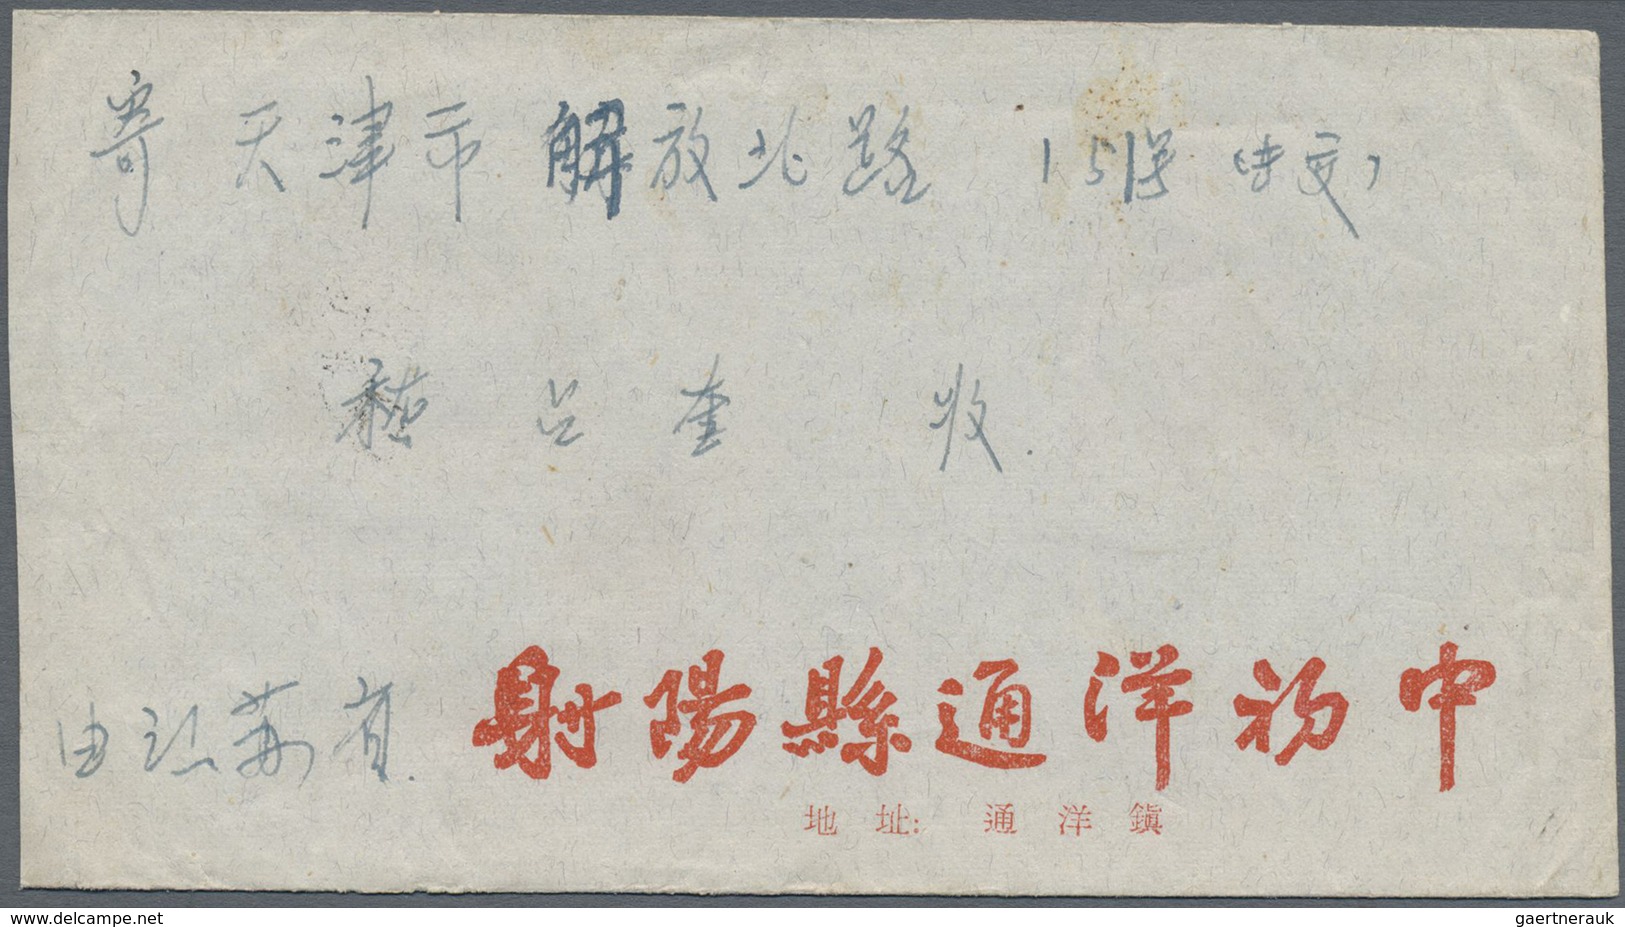 寄 天津市 解放北路 151号
占奎 收.
由江苏省. 射陽縣通洋初中
地址: 通洋鎮
www.delcampe.net
gaertnerauk